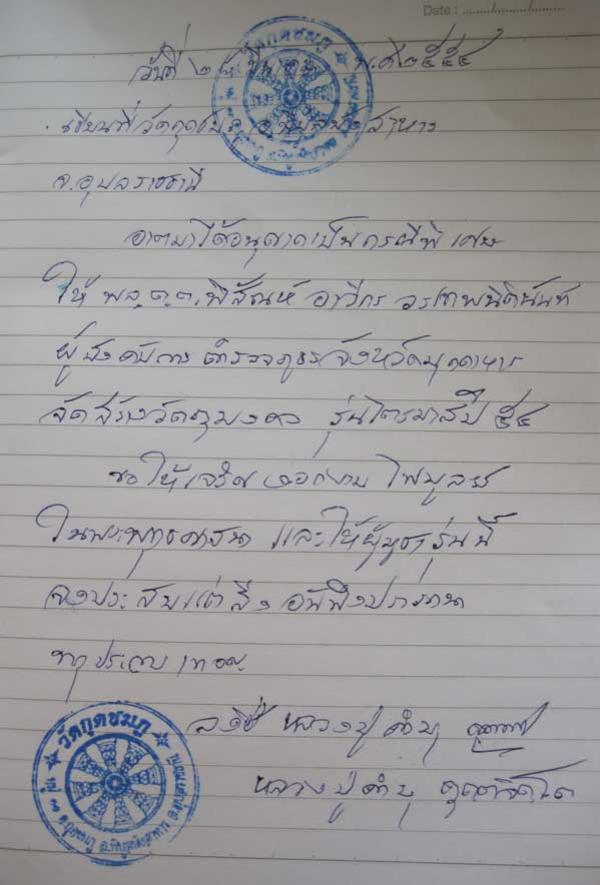 Date : ......../......../........
วันที่ ๒๕ พ.ศ ๒๕๕๔
เขียนที่วัดกุดชมภู อ.พิบูลมังสาหาร
จ.อุบลราชธานี
อาตมาได้อนุญาตเป็นกรณีพิเศษ
ให้ พล.ต.ต.พิสัณห์ อาวีกร วรเทพนิตินันท์
ผู้บังคับการ ตำรวจภูธรจังหวัดมุกดาหาร
จัดสร้างวัตถุมงคล รุ่นไตรมาสปี ๕๔
ขอให้เจริญงอกงาม ไพบูลย์
ในพระพุทธศาสนา และให้ผู้บูชารุ่นนี้
จงประสบแต่สิ่งอันพึงปรารถนา
ทุกประการ เทอญ
ลงชื่อ หลวงปู่คำบุ
หลวงปู่คำบุ คุตฺตจิตฺโต
วัดกุดชมภู